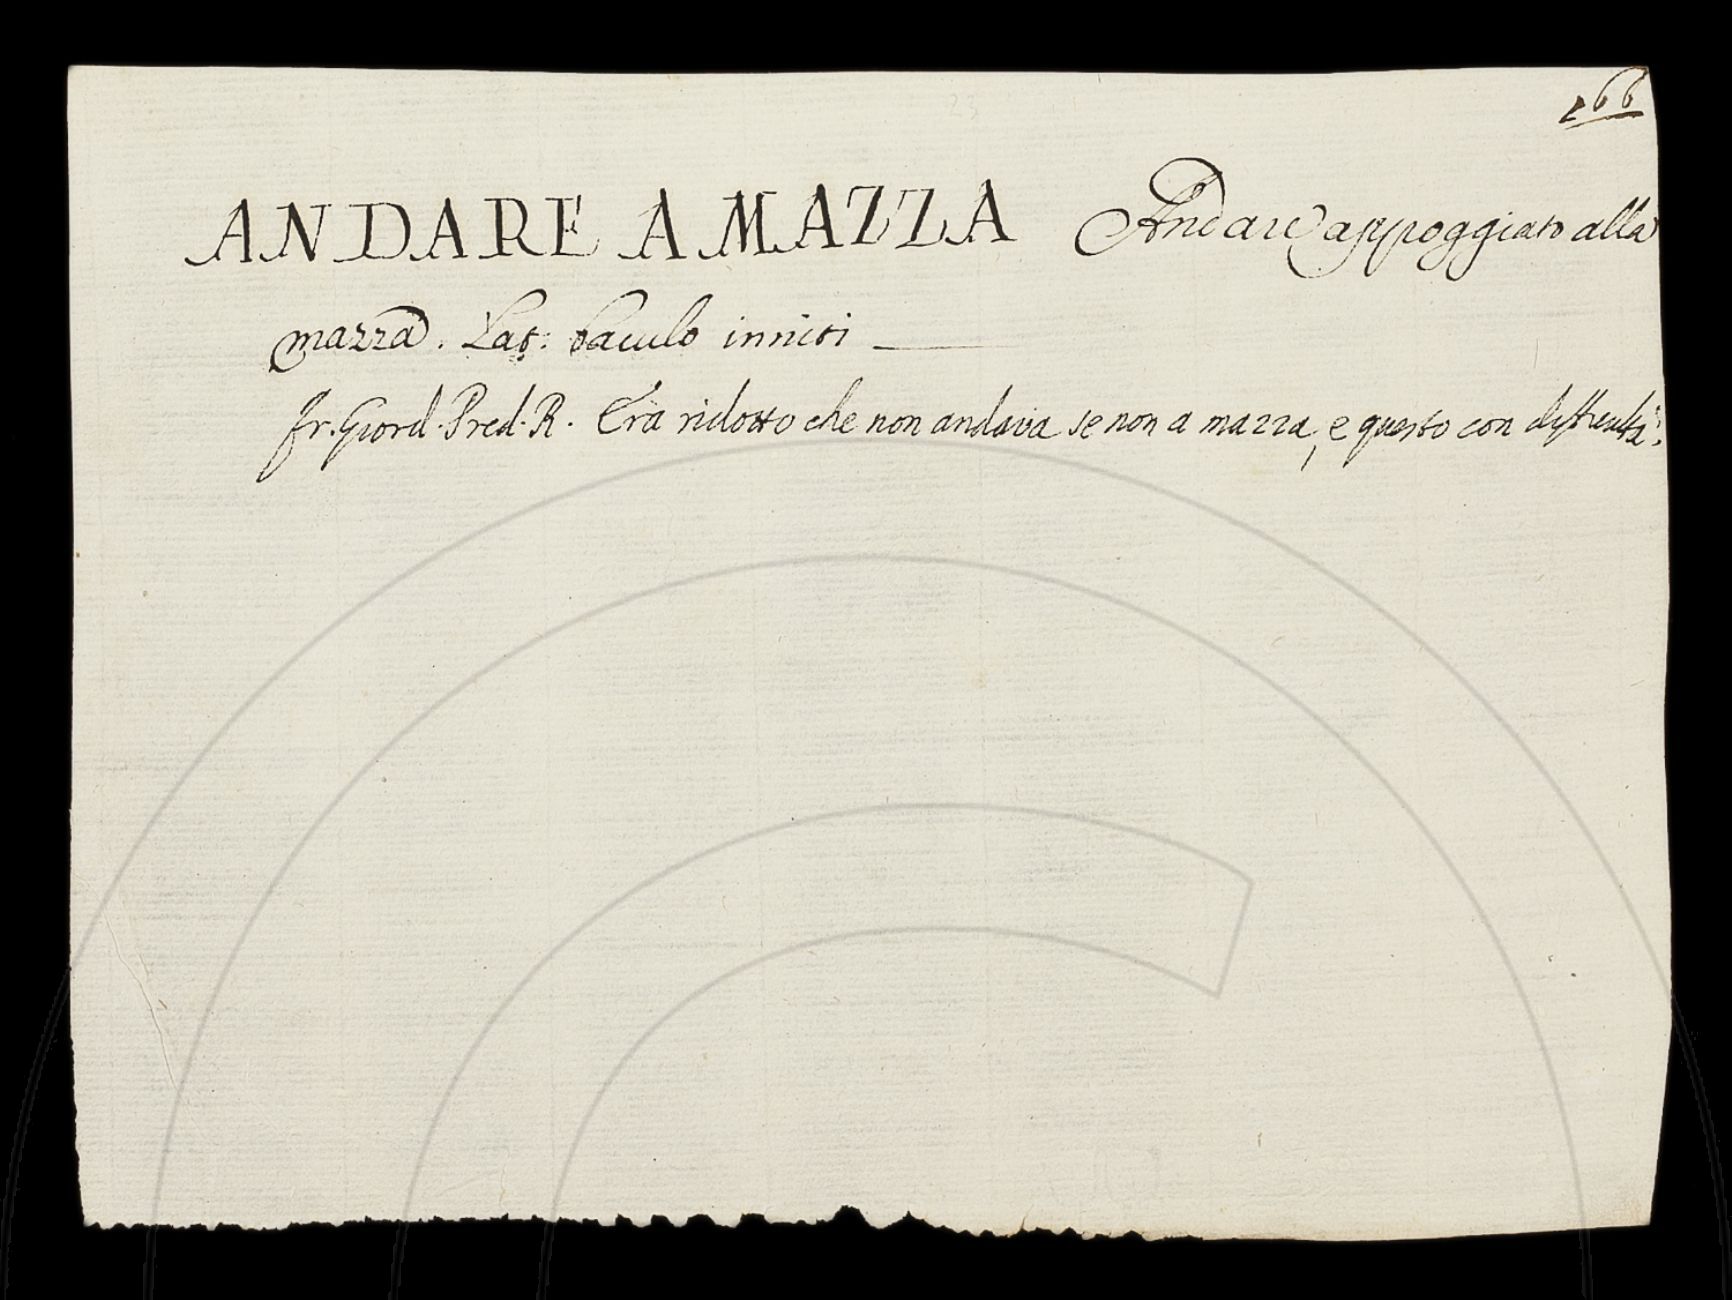 166
ANDARE A MAZZA Andare appoggiato alla
mazza. Lat. baculo inniti
fr. Giord. Pred. R. Era ridotto che non andava se non a mazza, e questo con difficultà.